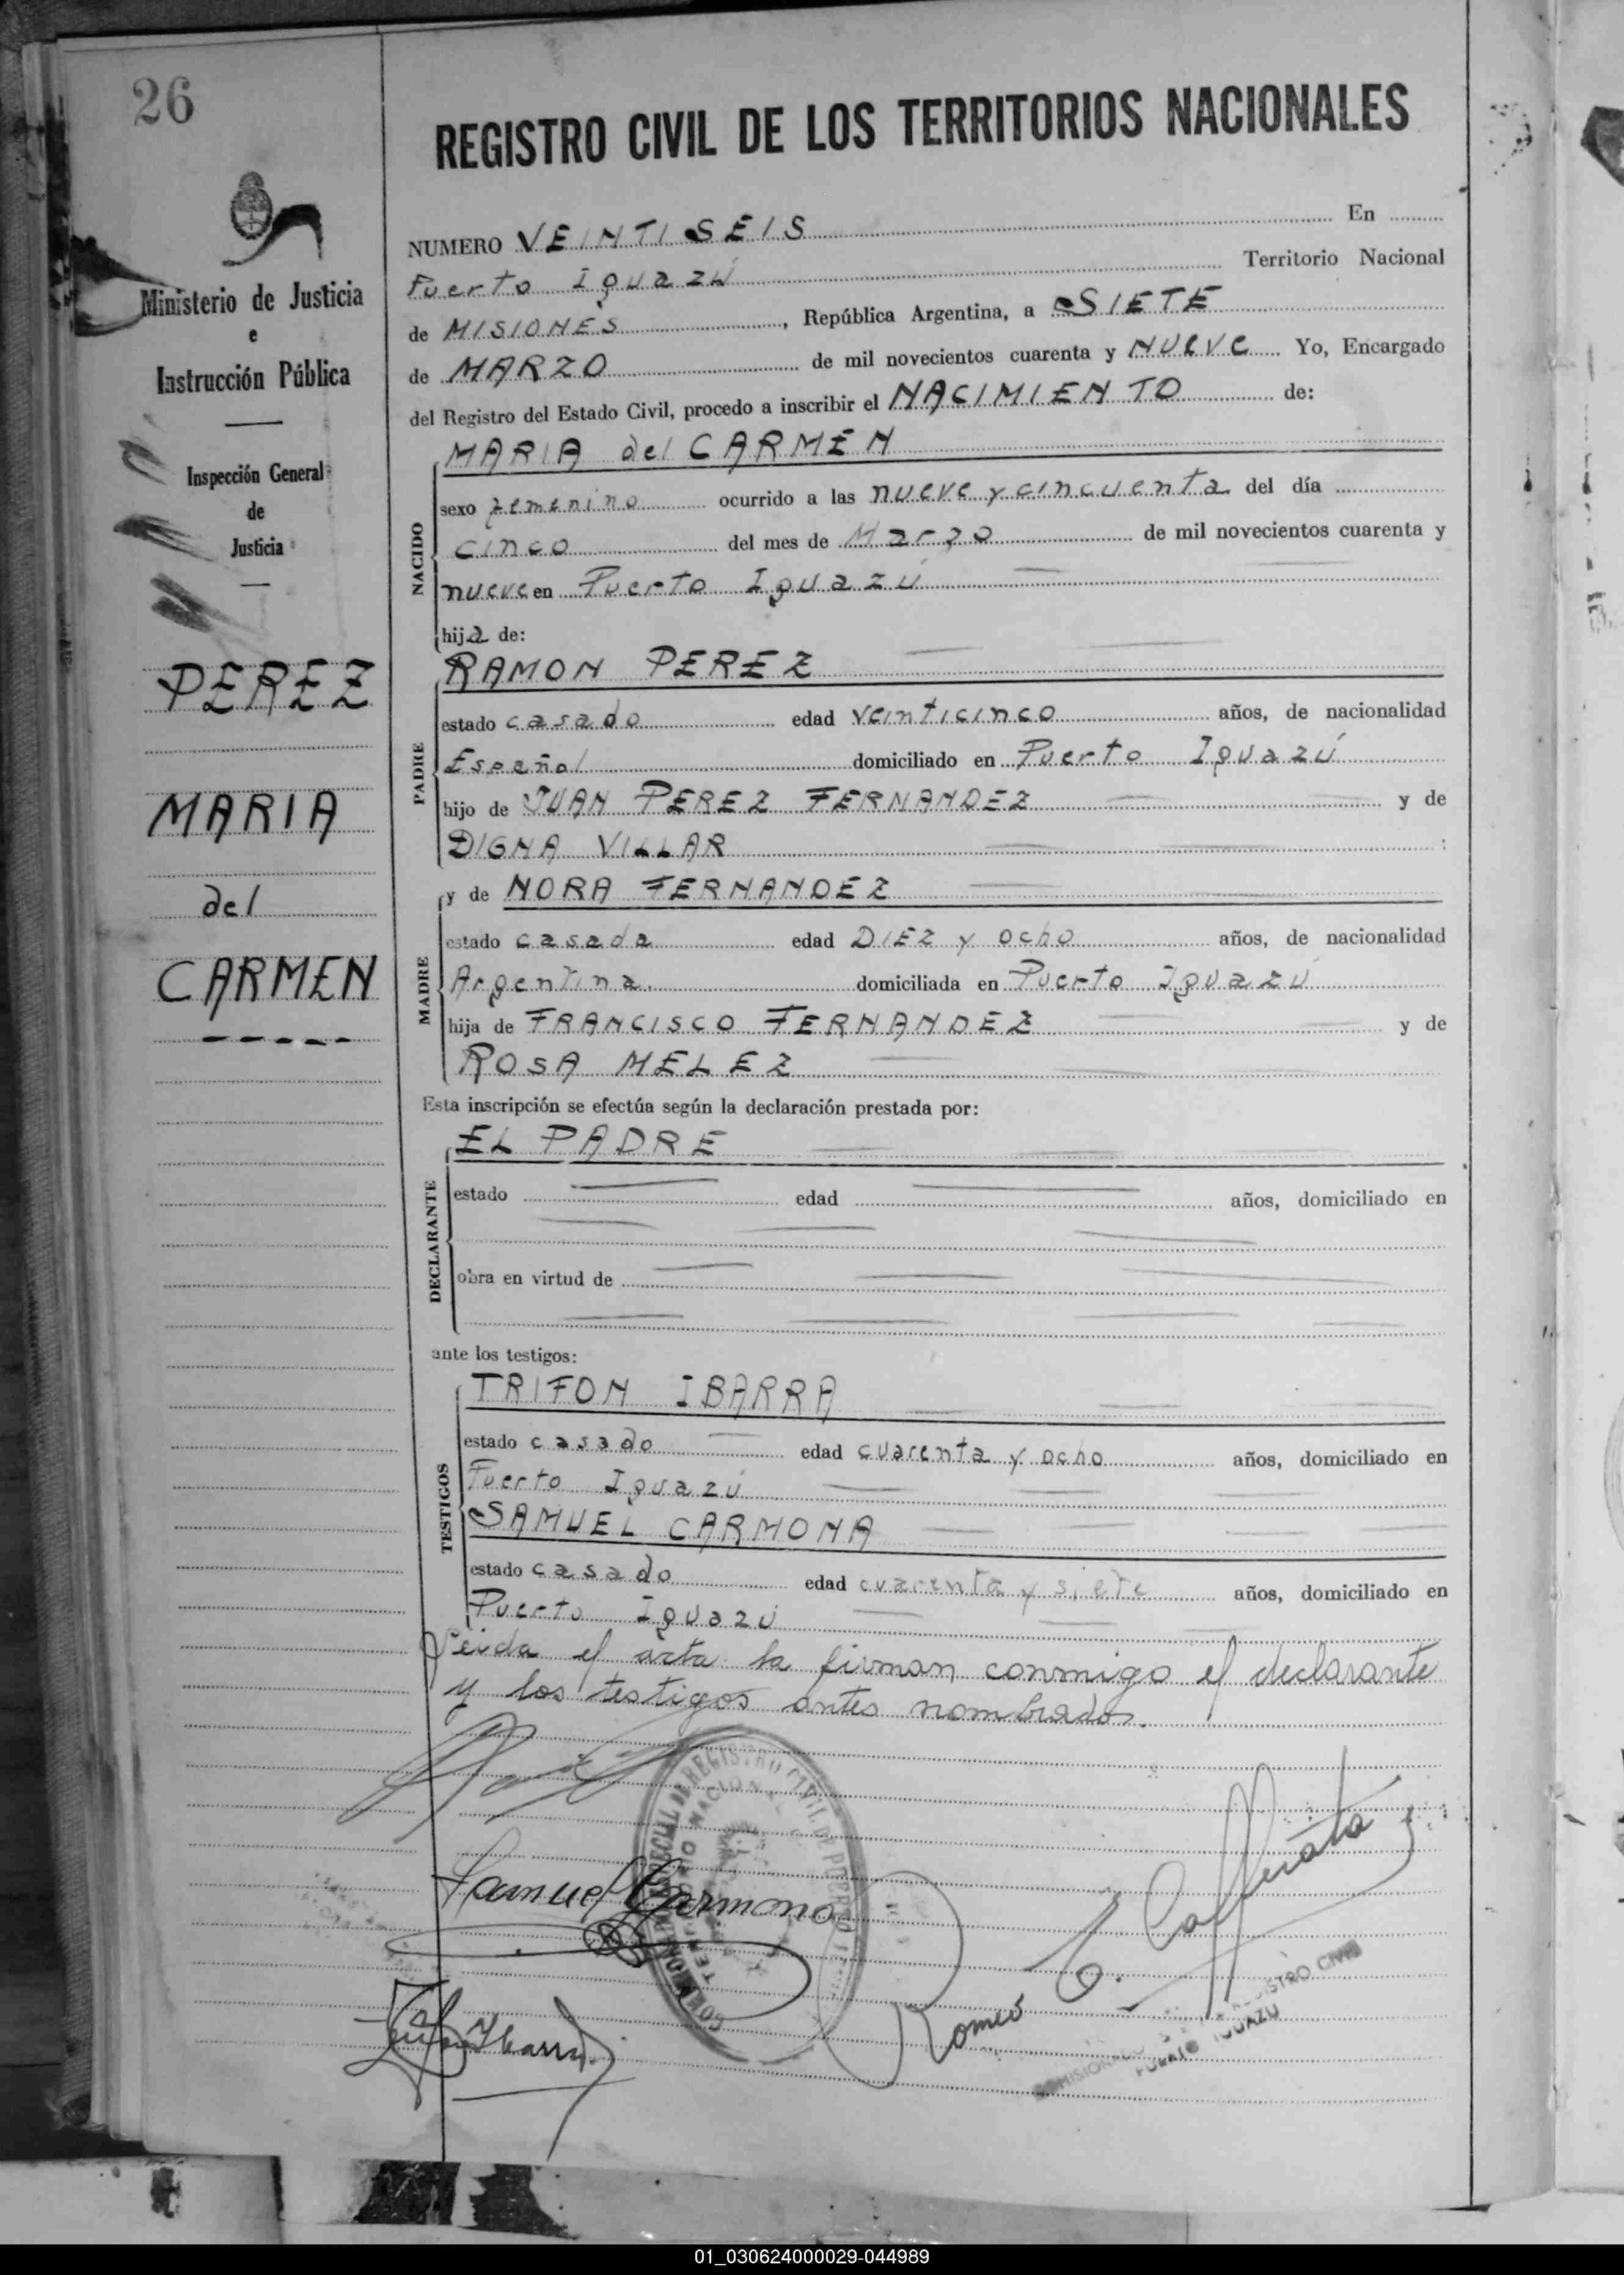 26
REGISTRO CIVIL DE LOS TERRITORIOS NACIONALES
Ministerio de Justicia
e
Instrucción Pública
Inspección General
de
Justicia
PEREZ
MARIA
del
CARMEN
NUMERO VEINTISEIS En
Puerto Iguazú Territorio Nacional
de MISIONES, República Argentina, a SIETE
de MARZO de mil novecientos cuarenta y NUEVE Yo, Encargado
del Registro del Estado Civil, procedo a inscribir el NACIMIENTO de:
MARIA del CARMEN
NACIDO
sexo femenino ocurrido a las nueve y cincuenta del día
cinco del mes de Marzo de mil novecientos cuarenta y
nueve en Puerto Iguazú
hija de:
RAMON PEREZ
PADRE
estado casado edad veinticinco años, de nacionalidad
Español domiciliado en Puerto Iguazú
hijo de JUAN PEREZ FERNANDEZ y de
DIGNA VILLAR :
y de NORA FERNANDEZ
MADRE
estado casada edad DIEZ y ocho años, de nacionalidad
Argentina. domiciliada en Puerto Iguazú
hija de FRANCISCO FERNANDEZ y de
ROSA MELEZ
Esta inscripción se efectúa según la declaración prestada por:
EL PADRE
DECLARANTE
estado edad años, domiciliado en
obra en virtud de
ante los testigos:
TRIFON IBARRA
TESTIGOS
estado casado edad cuarenta y ocho años, domiciliado en
Puerto Iguazú
SAMUEL CARMONA
estado casado edad cuarenta y siete años, domiciliado en
Puerto Iguazú
Leída el acta la firman conmigo el declarante
y los testigos antes nombrados.
Samuel Carmona
Trifon Ibarra
Romeo E. Cafferata
COMISIONADO REGISTRO CIVIL
PUERTO IGUAZU
01_030624000029-044989